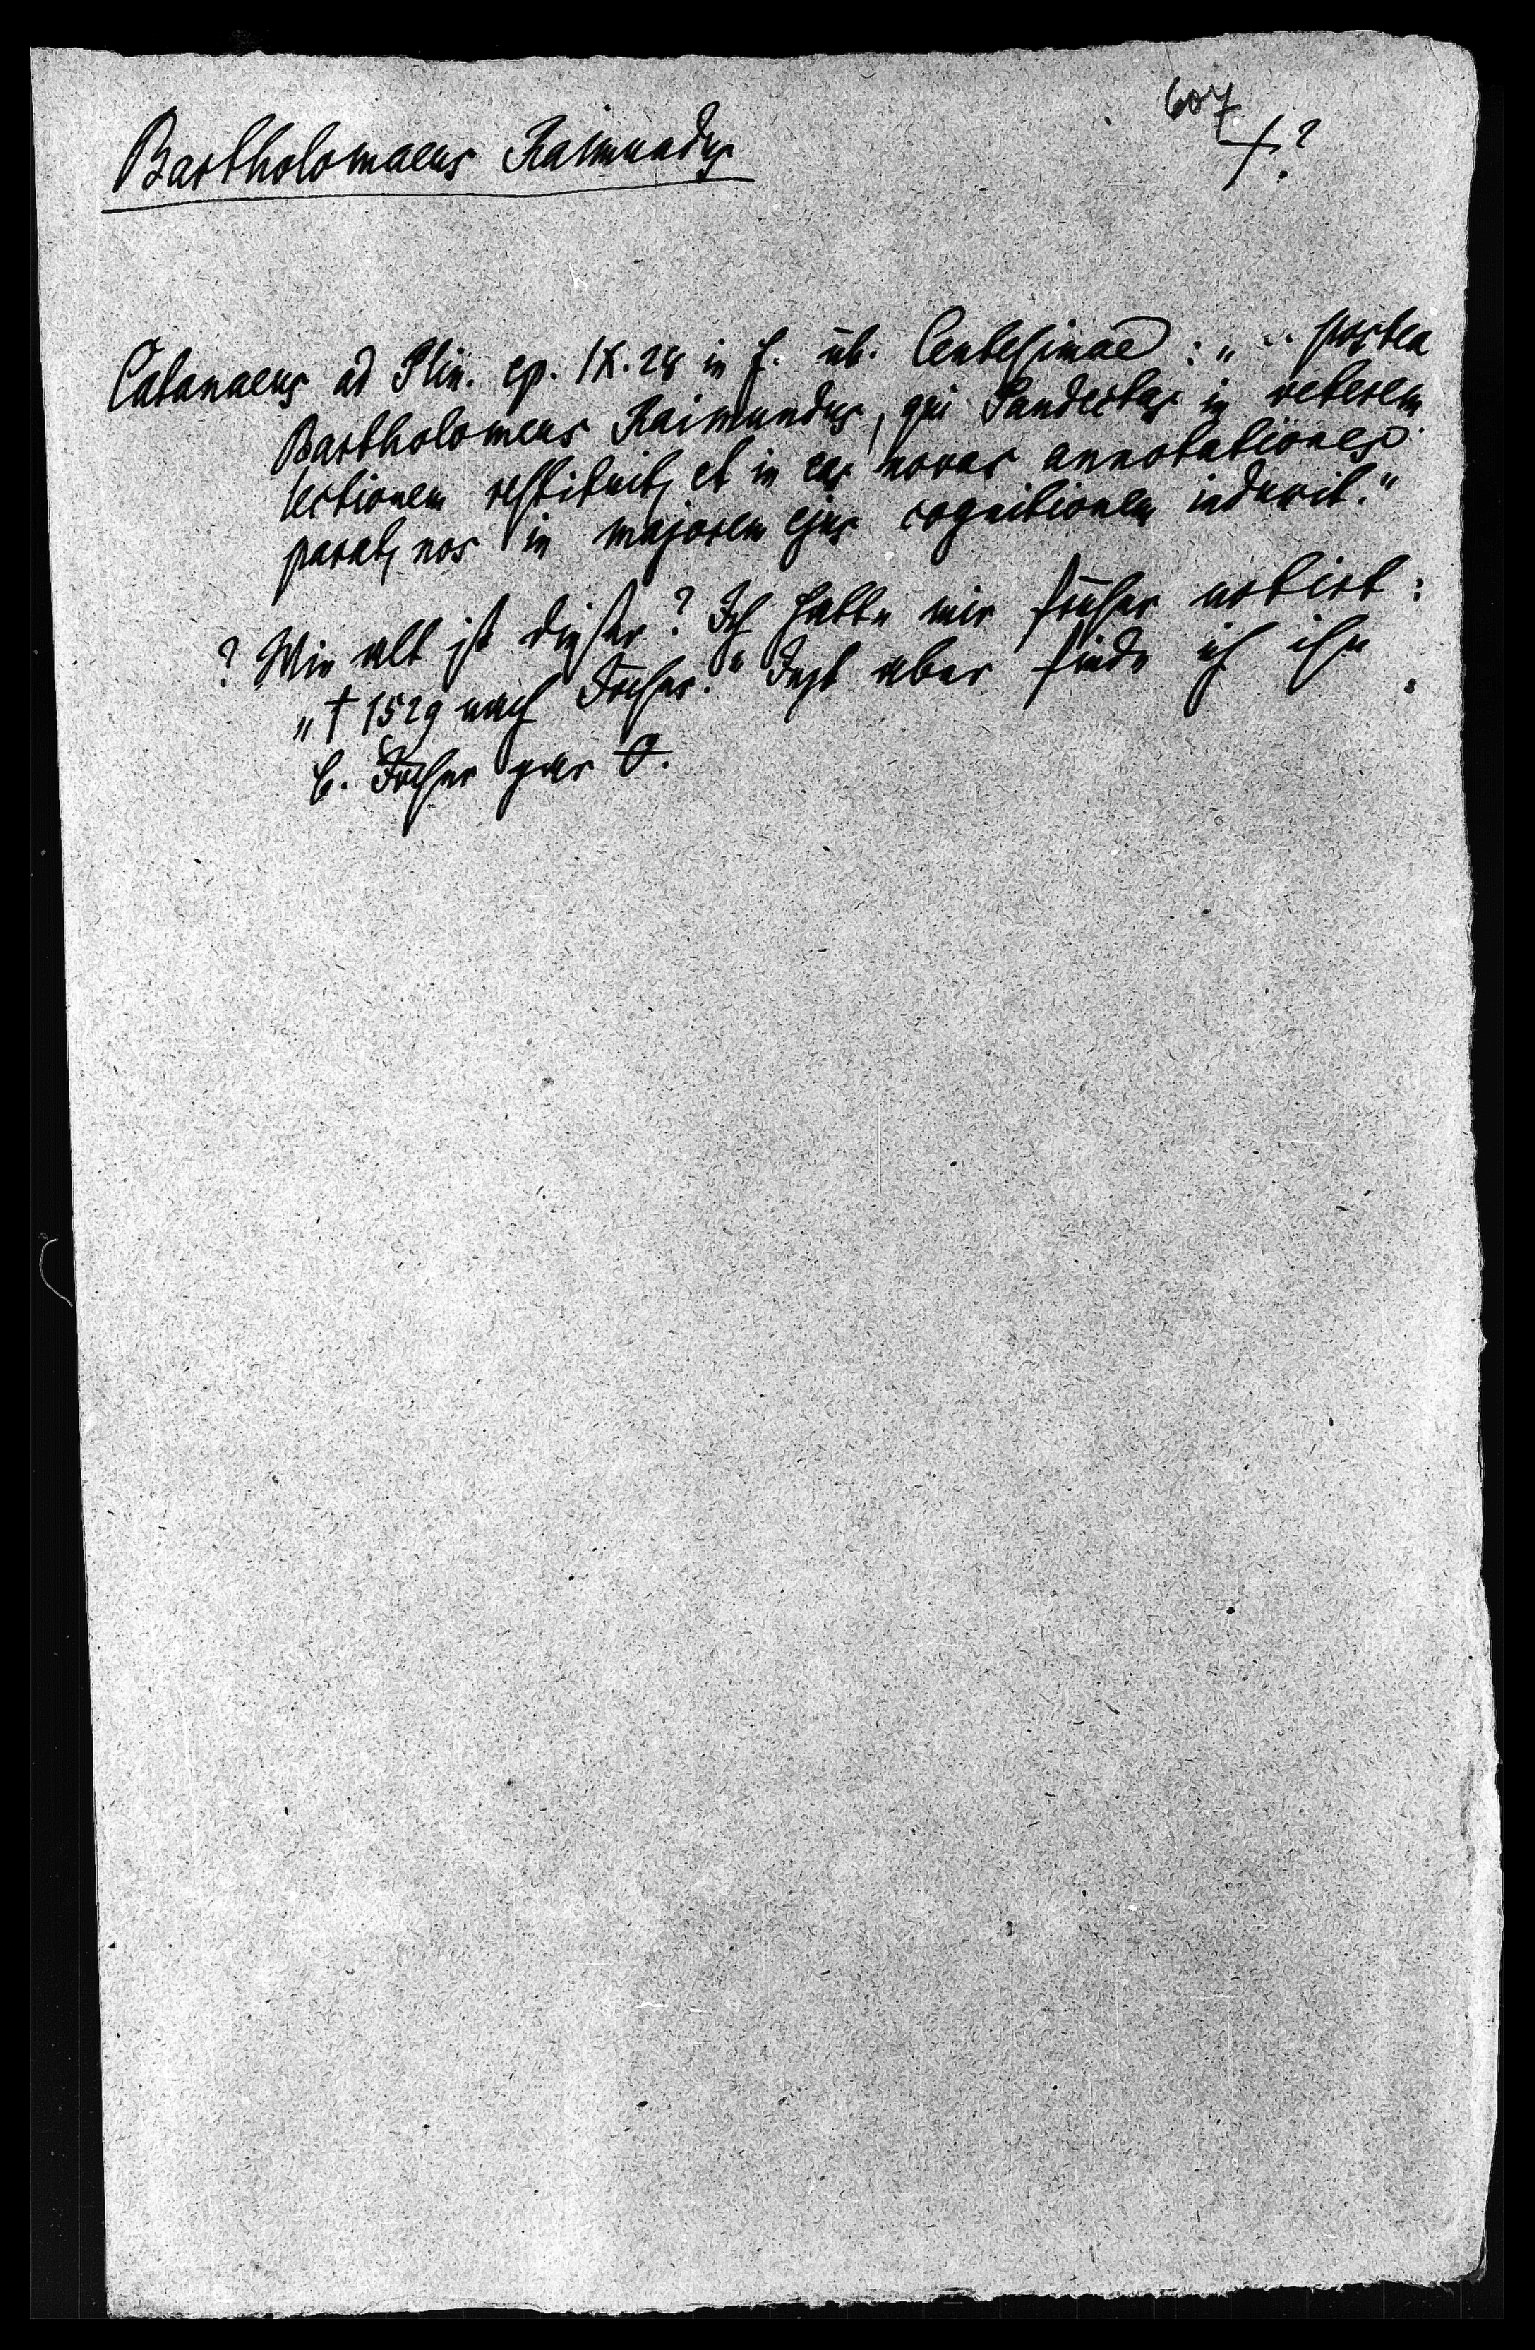 607
+?
Bartholomaeus Raimundus
Catanaeus ad Plin. ep. IX. 28 in f. üb. Centesimae: „ ... postea
Bartholomeus Raimundus, qui Pandectas in veterem
lectionem restituit, et in eas novas annotationes
parat, nos in majorem ejus cognitionem induxit."
? Wie alt ist dieser? Ich hatte mir früher notirt:
„† 1529 nach Jöcher." Jezt aber finde ich ihn
b. Jöcher gar 0.